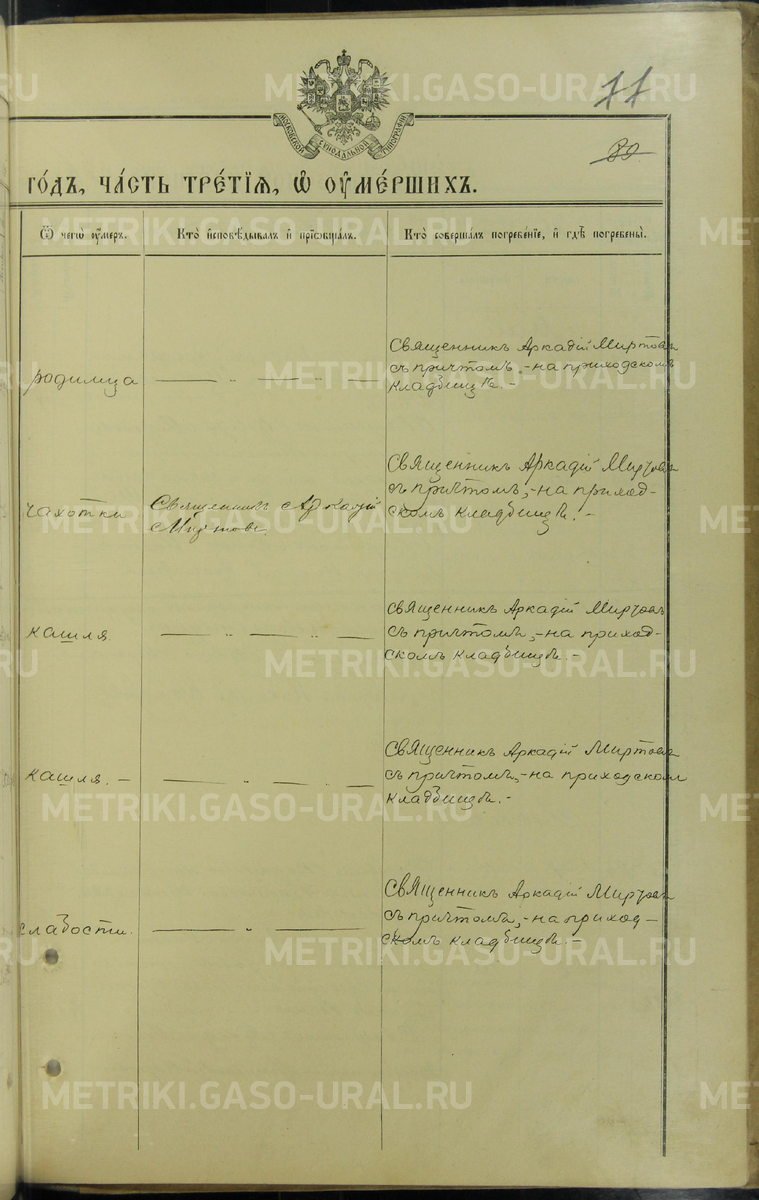 METRIKI.GASO-URAL.RU
11
МОСКОВСКОЙ СѴНОДАЛЬНОЙ ТИПОГРАФІИ
80
ГО́ДЪ, ЧА́СТЬ ТРЕ́ТІѦ, Ѽ ОУ҆МЕ́РШИХЪ.
Ѿ чегѡ̀ оу҆́мер.
Кто̀ и҆сповѣ́дывалъ и҆ прїобща́лъ.
Кто̀ соверша́лъ погребе́нїе, и҆ гдѣ̀ погребены̀.
родимца
Священникъ Аркадій Миртовъ
съ причтомъ,-на приходскомъ
кладбищѣ.-
чахотки
Священникъ Аркадій
Миртовъ.
Священникъ Аркадій Миртовъ
съ причтомъ,-на приход-
скомъ кладбищѣ.-
кашля
Священникъ Аркадій Миртовъ
съ причтомъ,-на приход-
скомъ кладбищѣ.-
кашля.-
Священникъ Аркадій Миртовъ
съ причтомъ,-на приходском
кладбищѣ.-
слабости.
Священникъ Аркадій Миртовъ
съ причтомъ,-на приход-
скомъ кладбищѣ.-